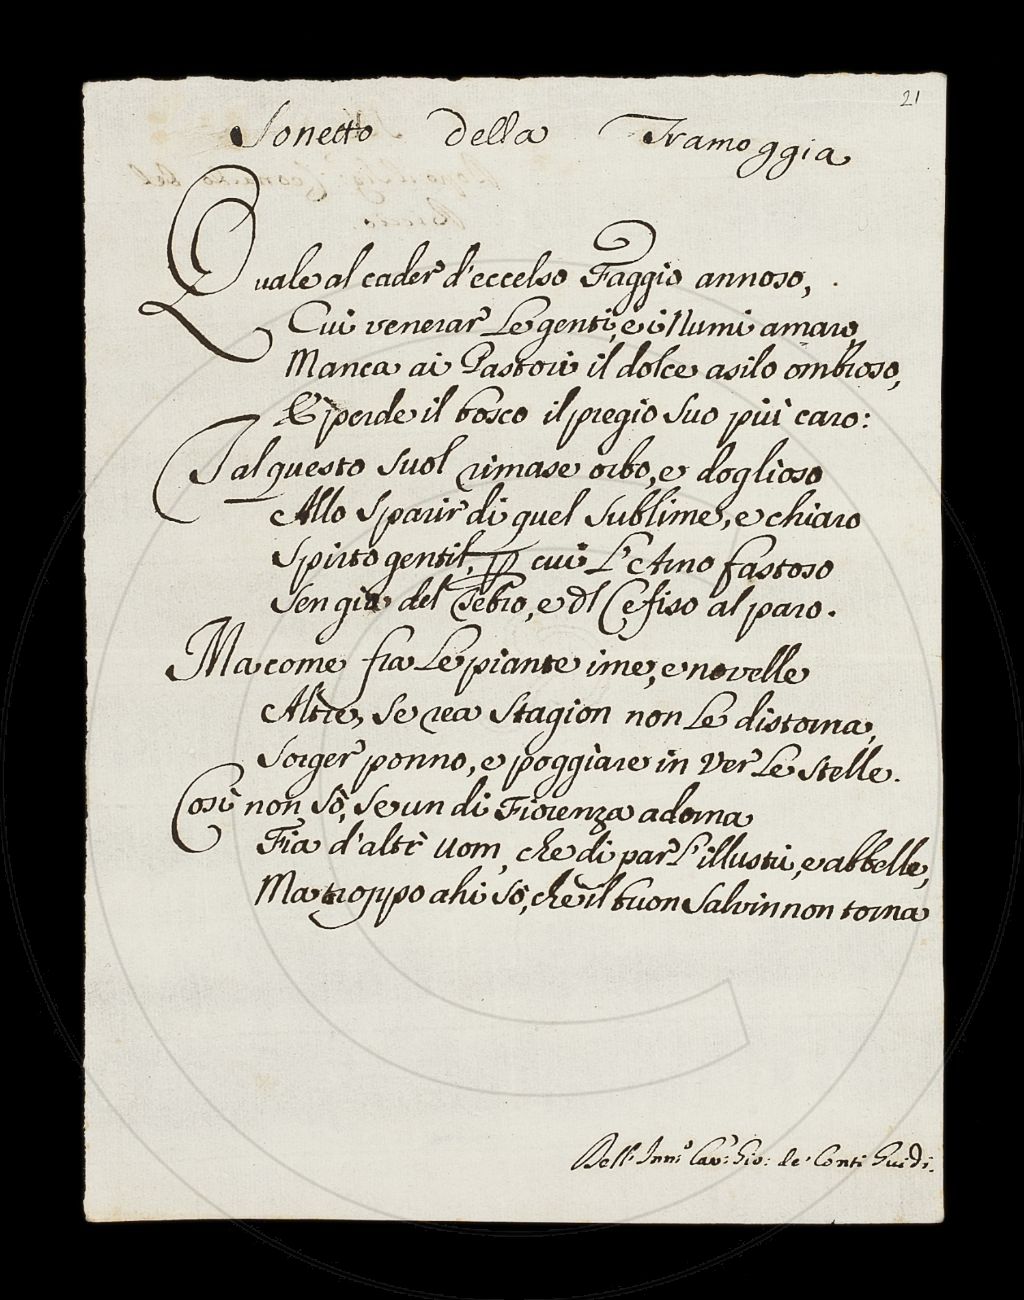 21
Sonetto della Tramoggia
Quale al cader d'eccelso Faggio annoso,
Cui venerar Le genti, e i Numi amaro,
Manca ai Pastori il dolce asilo ombroso,
E perde il bosco il pregio suo più caro:
Tal questo suol rimase orbo, e doglioso
Allo sparir di quel sublime, e chiaro
Spirto gentil, p cui L'Arno fastoso
Sen gia del Tebro, e dl Cefiso al paro.
Ma come fra Le piante ime, e novelle
Altre, se rea stagion non Le distorna,
Sorger ponno, e poggiare in ver Le stelle.
Così non sò, se un di Fiorenza adorna
Fia d'altr' uom, che di par L'illustri, e abbelle,
Ma troppo ahi sò, che il buon Salvin non torna
Dell' Cav.r Gio: de' Conti Guidi.